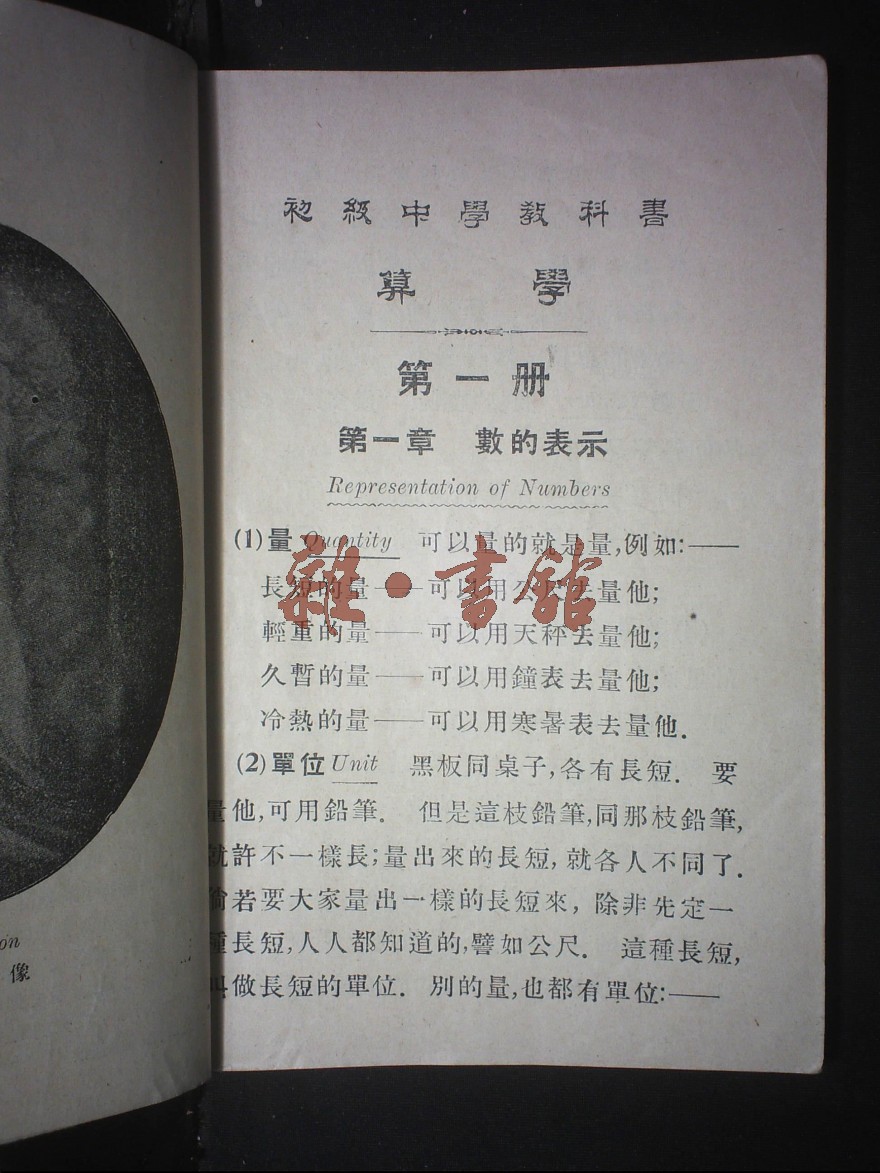 初級中學教科書
算學
第一册
第一章 數的表示
Representation of Numbers
(1)量 Quantity 可以量的就是量,例如:——
長短的量——可以用公尺去量他;
輕重的量——可以用天秤去量他;
久暫的量——可以用鐘表去量他;
冷熱的量——可以用寒暑表去量他.
(2)單位 Unit 黑板同桌子,各有長短. 要
量他,可用鉛筆. 但是這枝鉛筆,同那枝鉛筆,
就許不一樣長;量出來的長短,就各人不同了.
倘若要大家量出一樣的長短來,除非先定一
種長短,人人都知道的,譬如公尺. 這種長短,
叫做長短的單位. 別的量,也都有單位:——
雜·書館
on
像